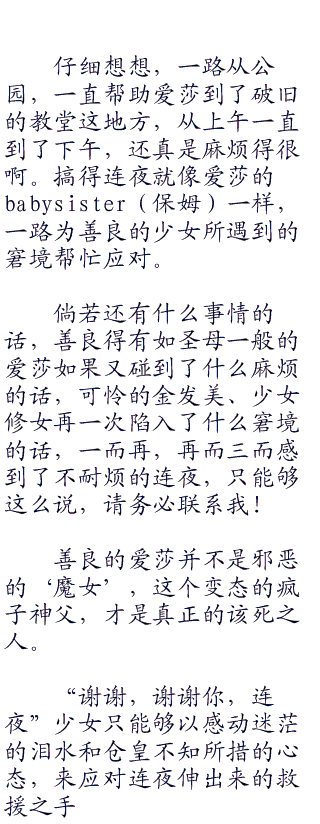 仔细想想，一路从公
园，一直帮助爱莎到了破旧
的教堂这地方，从上午一直
到了下午，还真是麻烦得很
啊。搞得连夜就像爱莎的
babysister（保姆）一样，
一路为善良的少女所遇到的
窘境帮忙应对。
倘若还有什么事情的
话，善良得有如圣母一般的
爱莎如果又碰到了什么麻烦
的话，可怜的金发美、少女
修女再一次陷入了什么窘境
的话，一而再，再而三而感
到了不耐烦的连夜，只能够
这么说，请务必联系我！
善良的爱莎并不是邪恶
的‘魔女’，这个变态的疯
子神父，才是真正的该死之
人。
“谢谢，谢谢你，连
夜”少女只能够以感动迷茫
的泪水和仓皇不知所措的心
态，来应对连夜伸出来的救
援之手